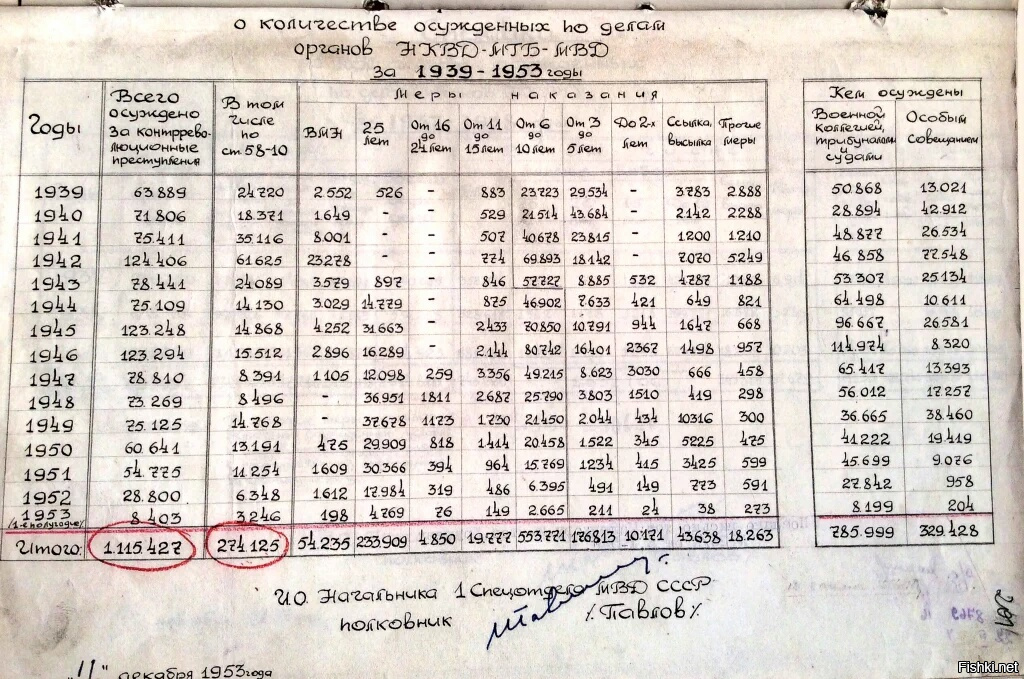 о количестве осужденных по делам
органов НКВД-МГБ-МВД
за 1939-1953 годы
Годы Всего осуждено за контрреволюционные преступления В том числе по ст. 58-10 Меры наказания Кем осуждены
ВМН 25 лет От 16 до 24 лет От 11 до 15 лет От 6 до 10 лет От 3 до 5 лет До 2-х лет Ссылка, высылка Прочие меры Военной коллегией, трибуналами и судами Особым совещанием
1939 63.889 24720 2.552 526 - 883 23723 29.534 - 3783 2.888 50.868 13.021
1940 71.806 18.371 1649 - - 529 21514 43.684 - 2142 2288 28.894 42.912
1941 75.411 35.116 8.001 - - 507 40678 23.815 - 1200 1210 48.877 26.534
1942 124.406 61625 23278 - - 774 69.893 18.142 - 7070 5249 46.858 77.548
1943 78.441 24089 3.579 897 - 846 57.727 8.885 532 4787 1188 53.307 25.134
1944 75.109 14.130 3.029 14.779 - 875 46.902 7.633 421 649 821 64.498 10.611
1945 123.248 14.868 4.252 31.663 - 2433 70850 10.791 944 1647 668 96.667 26.581
1946 123.294 15.512 2896 16.289 - 2.144 80.742 16401 2367 1498 957 114.974 8.320
1947 78.810 8.391 1105 12.098 259 3.356 49.215 8.623 3030 666 458 65.417 13.393
1948 73.269 8.496 - 36.951 1811 2687 25.790 3803 1510 419 298 56.012 17.257
1949 75.125 14.768 - 37.678 1173 1.730 21.450 2.044 434 10316 300 36.665 38.460
1950 60.641 13.191 475 29.909 818 1414 20458 1.522 345 5225 475 41.222 19.419
1951 54.775 11.254 1609 30.366 394 964 15.769 1234 415 3425 599 45.699 9.076
1952 28.800 6.348 1612 17.984 319 486 6.395 491 149 773 591 27.842 958
1953 (1-е полугодие) 8.403 3.246 198 4.769 76 149 2.665 211 24 38 273 8.199 204
Итого: 1.115.427 274.125 54.235 233.909 4.850 19.777 553.771 176813 10.171 43.638 18.263 785.999 329.428
И.О. Начальника 1 Спецотдела МВД СССР
полковник /Павлов/
„11" декабря 1953 года
Fishki.net